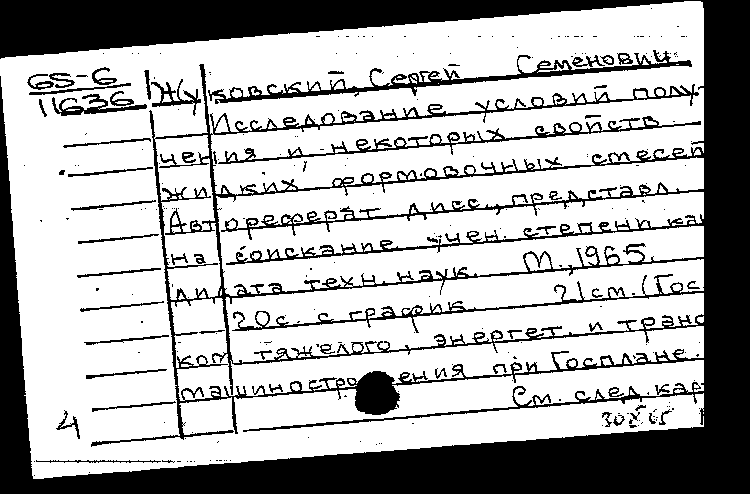 65-6
11636
Жуковский, Сергей Семенович
Исследование условий полу-
чения и некоторых свойств
жидких формовочных смесей
Автореферат дисс., представл.
на соискание учен. степени кан
дидата техн. наук. М., 1965.
20с. с график. 21см. (Гос
ком. тяжелого, энергет. и транс
машиностроения при Госплане.
См. след. кар
4
30 X 65